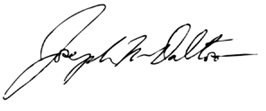 Joseph M Dalton